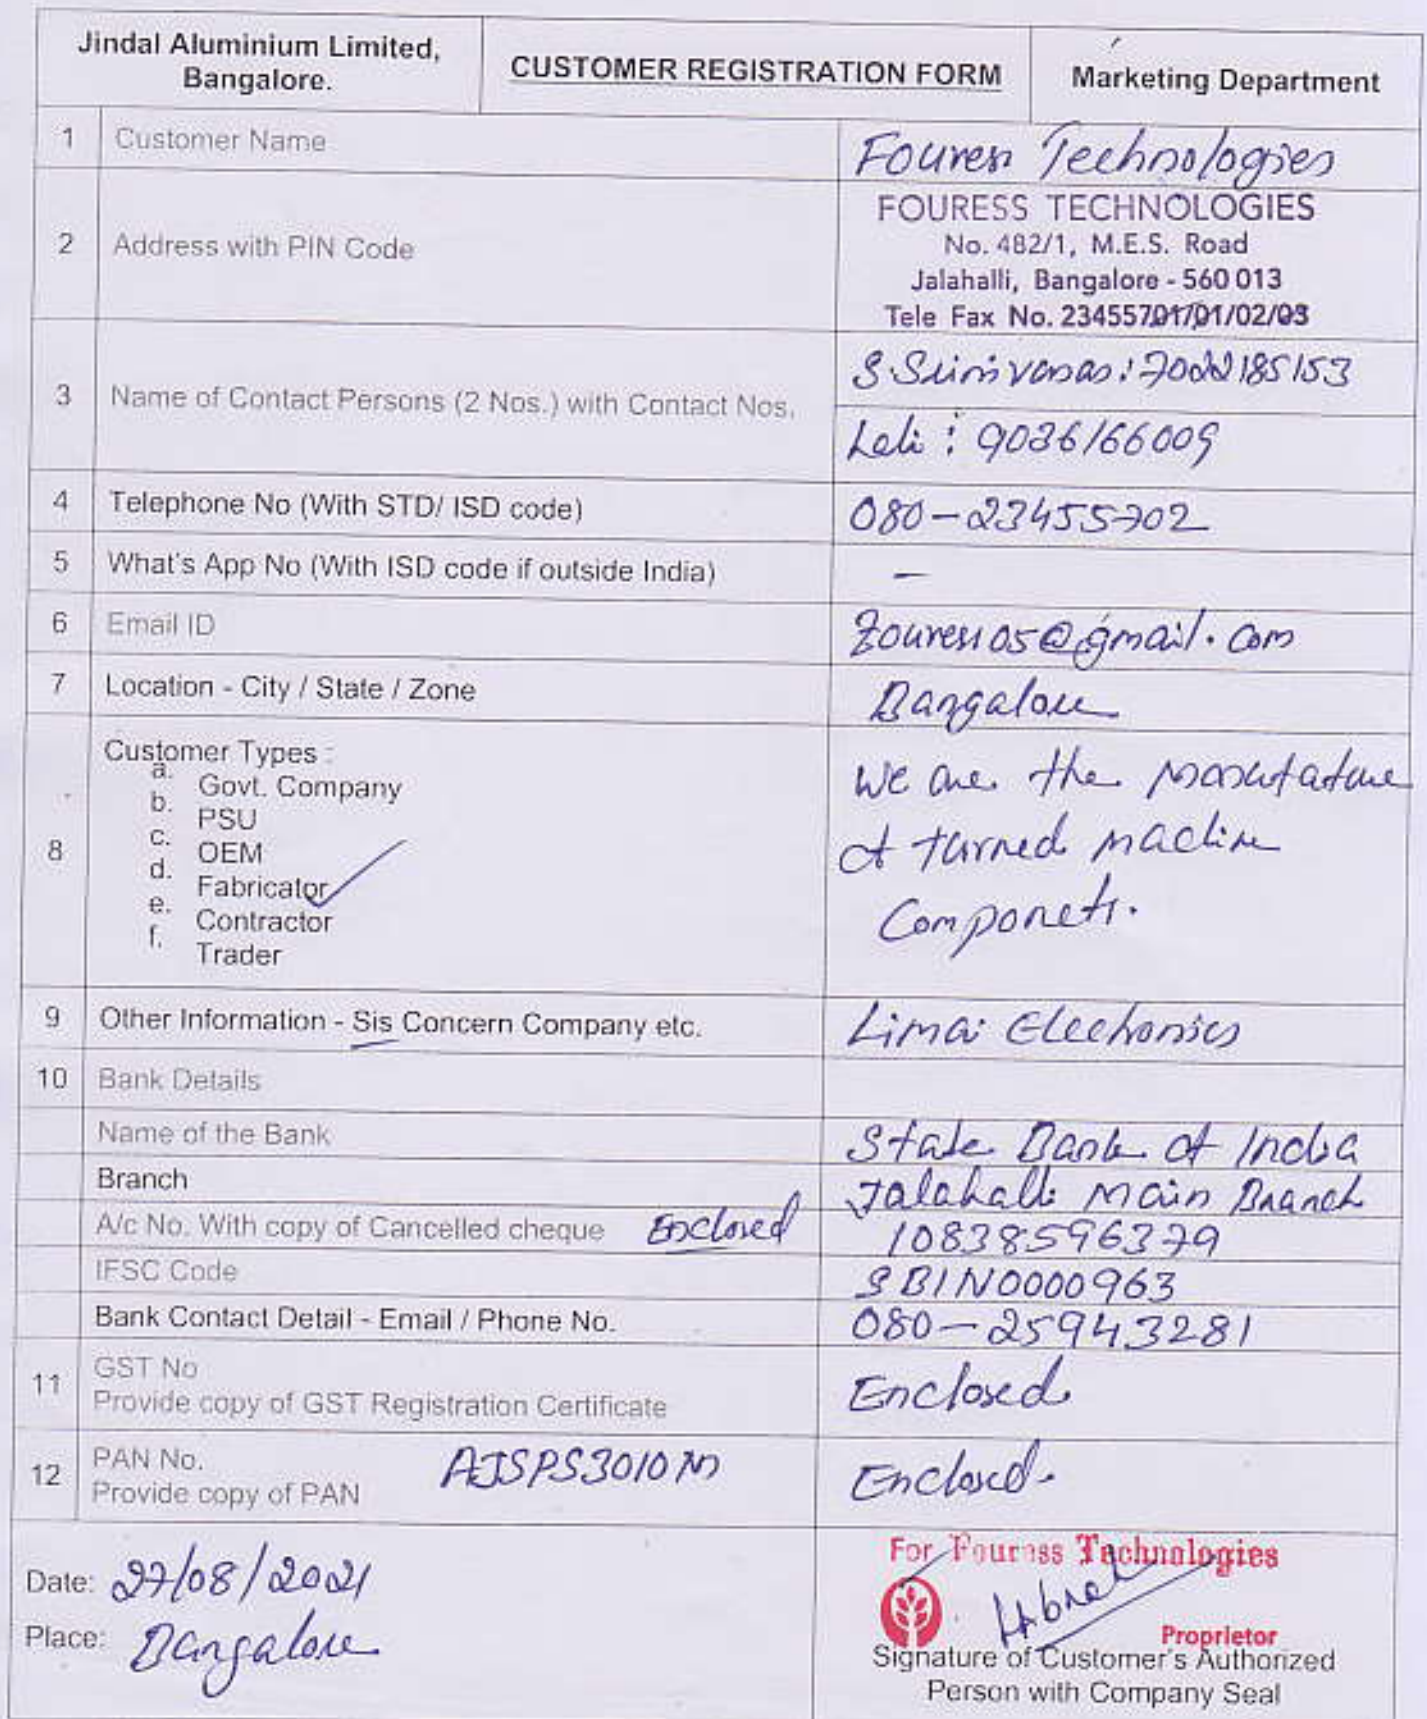 Jindal Aluminium Limited,
Bangalore.
CUSTOMER REGISTRATION FORM
Marketing Department
1 Customer Name Fouress Technologies
2 Address with PIN Code
FOURESS TECHNOLOGIES
No. 482/1, M.E.S. Road
Jalahalli, Bangalore - 560 013
Tele Fax No. 23455701/01/02/03
3 Name of Contact Persons (2 Nos.) with Contact Nos.
S. Srinivasas: 7022185153
9036166009
4 Telephone No (With STD/ ISD code) 080-23455702
5 What's App No (With ISD code if outside India) -
6 Email ID fouress05@gmail.com
7 Location - City / State / Zone Bangalore
8 Customer Types :
a. Govt. Company
b. PSU
c. OEM
d. Fabricator ✓
e. Contractor
f. Trader
We are the
of turned machine
Components.
9 Other Information - Sis Concern Company etc. Limai Electronics
10 Bank Details
Name of the Bank State Bank of India
Branch Jalahalli Main Branch
A/c No. With copy of Cancelled cheque Enclosed 10838596379
IFSC Code SBIN0000963
Bank Contact Detail - Email / Phone No. 080-25943281
11 GST No
Provide copy of GST Registration Certificate Enclosed
12 PAN No. AJSPS3010M
Provide copy of PAN Enclosed.
Date: 27/08/2021
Place: Bangalore
For Fouress Technologies
Proprietor
Signature of Customer's Authorized
Person with Company Seal